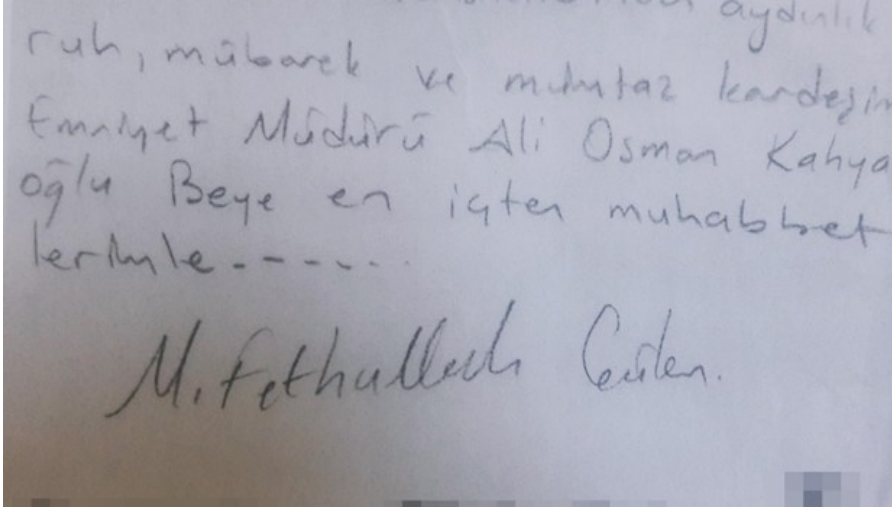 aydınlık
ruh, mübarek ve mümtaz kardeşim
Emniyet Müdürü Ali Osman Kahya
oğlu Beye en içten muhabbet
lerimle.------
M. Fethullah Gülen.